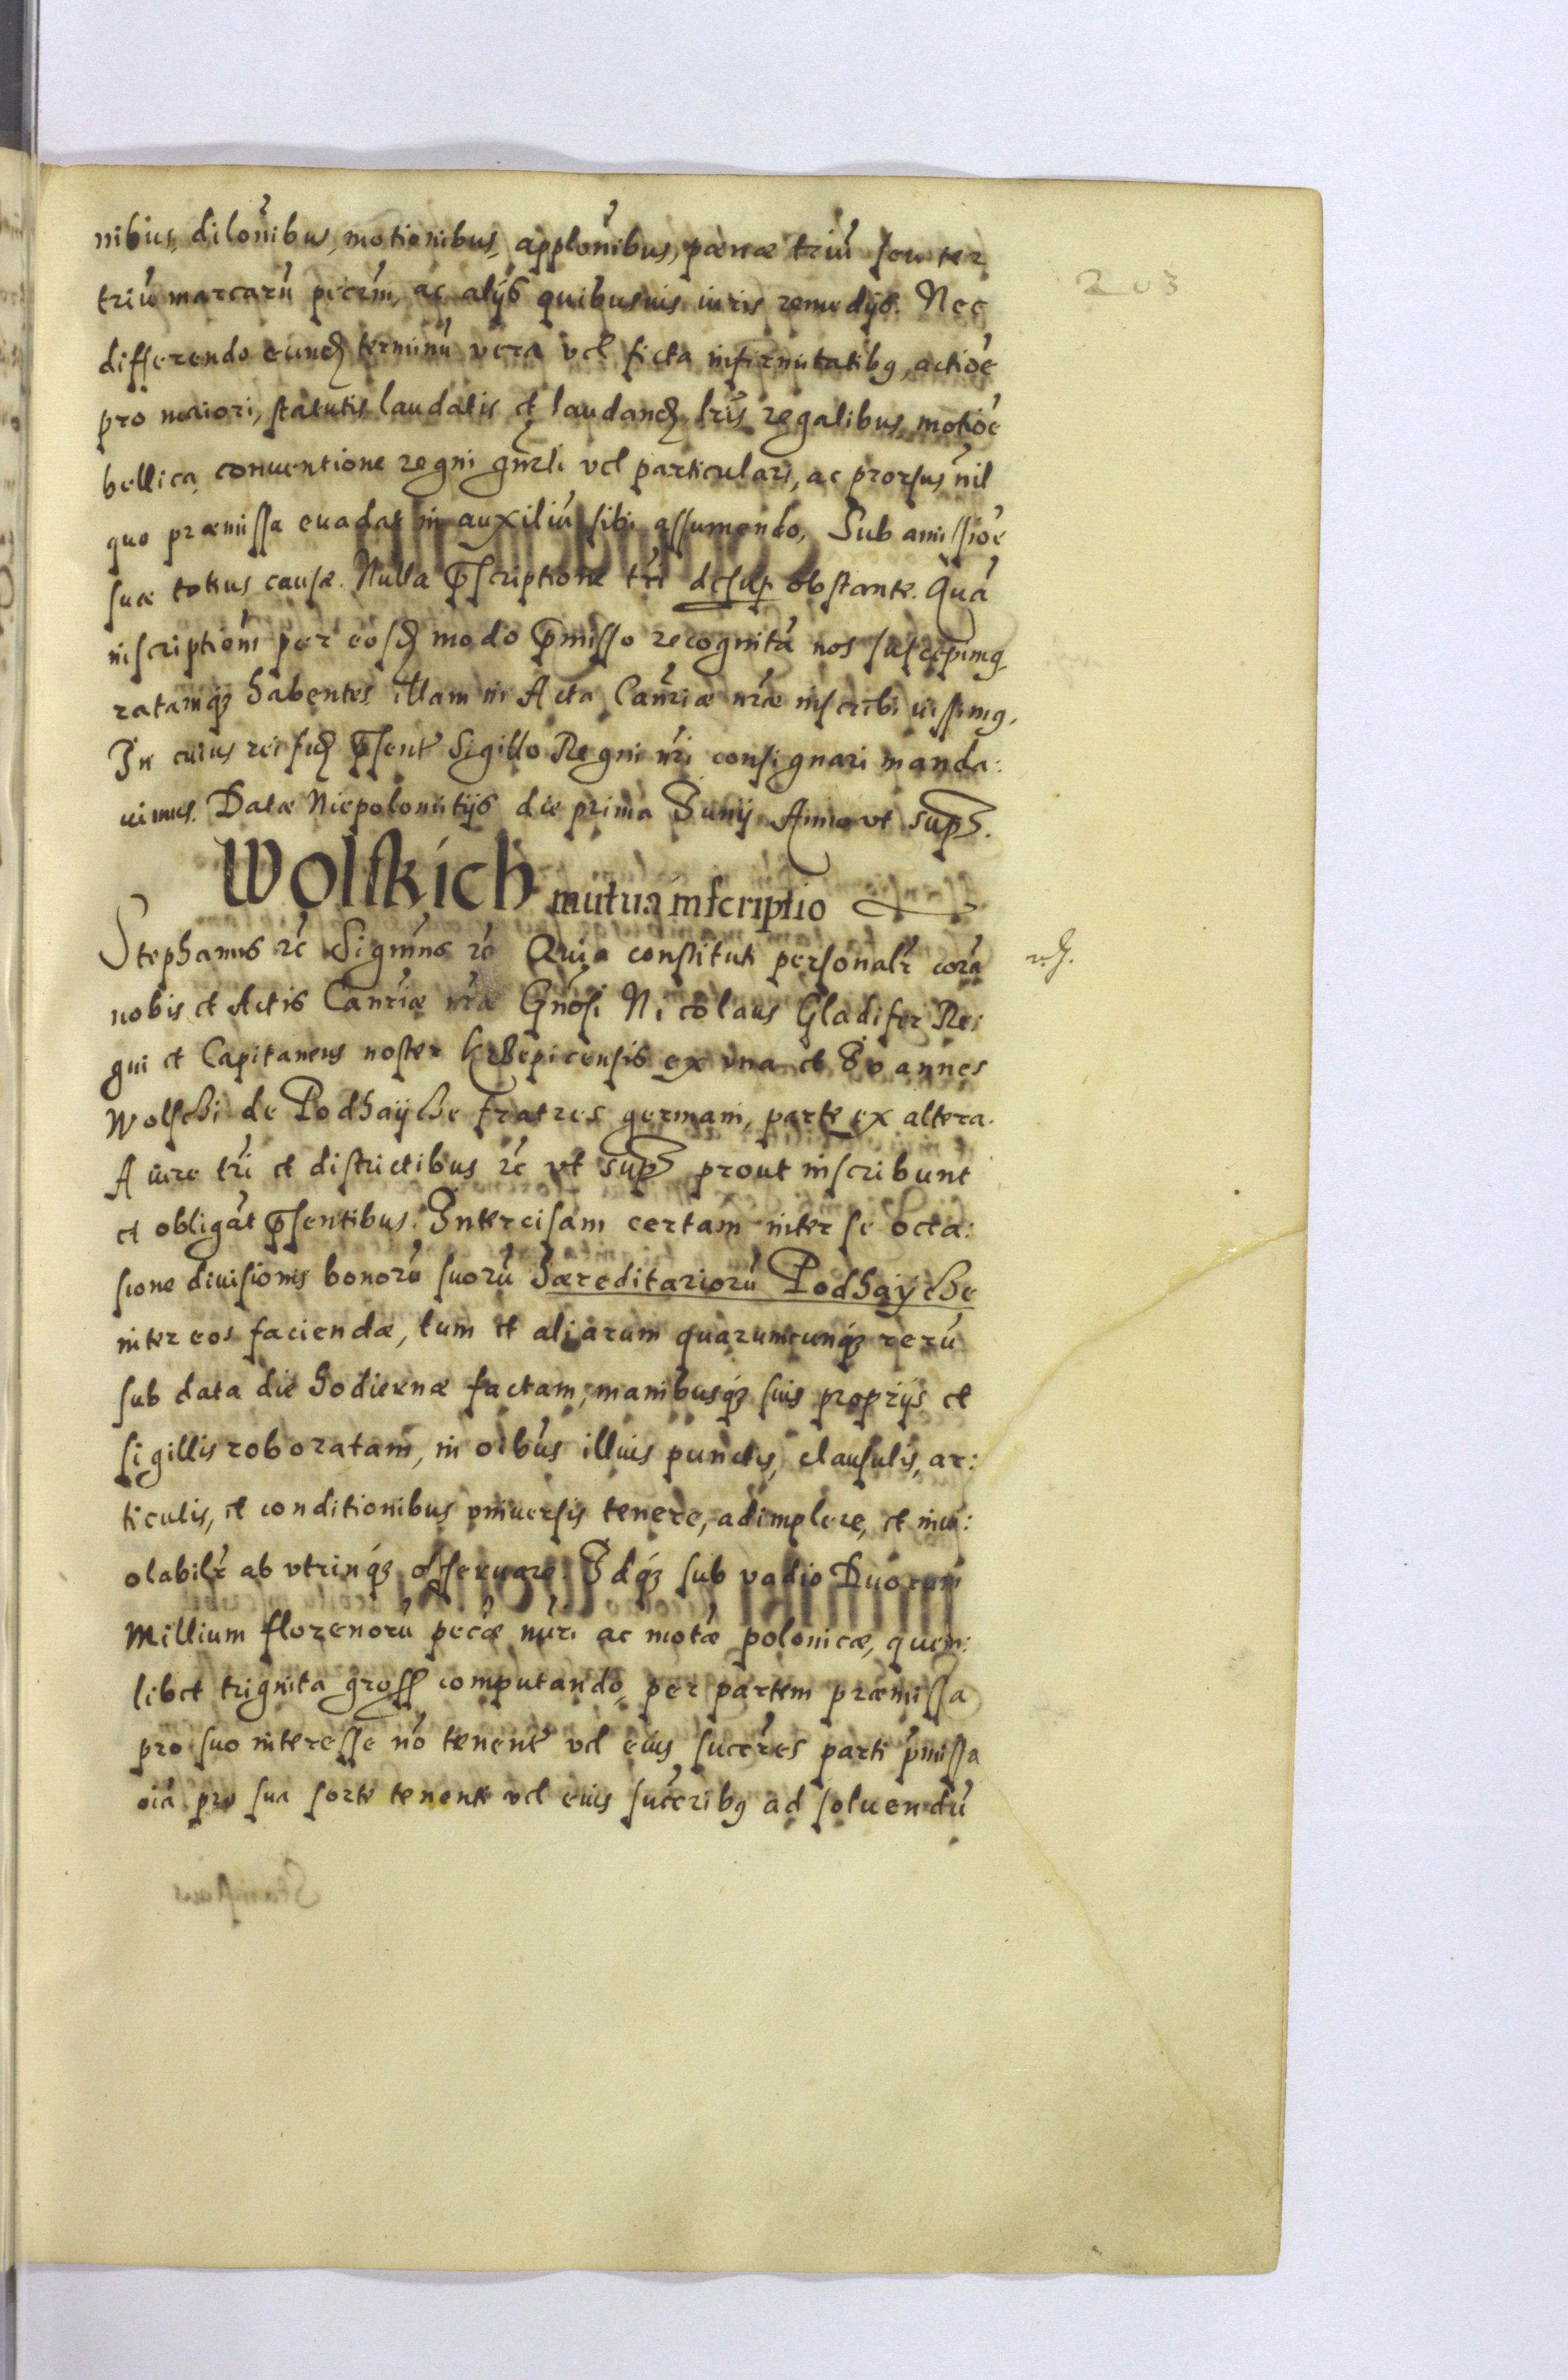 nibus, dilonibus, motionibus, applonibus, pænæ triū seu ter
203
triū marcarū pecrm, ac alijs quibusuis iuris remedijs. Nec
differendo eund terminū vera vel ficta infirmitatibg, actioe
pro maiori, statutis laudatis et laudand, lris regalibus, motioe
bellica, conuentione regni gnrli vel particulari, ac prorsus nil
quo præmissa euadat in auxiliū sibi assumendo, Sub amissioe
suæ totius causæ. Nulla pscriptione tri desup obstante. Quā
inscriptiōm per eosd modo pmisso recognitā nos suscepimg,
ratamqz habentes illam in Acta Canriæ nræ inscribi iussimg,
In cuius rei fid psent Sigillo Regni nri consignari manda:
uimus. Datæ Niepolomitijs die prima Junij Anno vt sup.
Wolskich mutua inscriptio
Stephanus rc Signms rc Quia constituti personalr corā
nobis et Actis Canriæ nræ Gnosi Nicolaus Gladifer Re:
gni et Capitaneus noster Krzepicensis ex vna et Joannes
Wolschi de Podhayche fratres germani, parte ex altera.
A iure tri et districtibus rc vt sup prout inscribunt
et obligāt psentibus. Intercisam certam inter se occa:
sione diuisionis bonorū suorū hæreditariorū Podhayche
inter eos faciendæ, tum et aliarum quarumcunqz rerū
sub data die hodiernæ factam, manibusqz suis proprijs et
sigillis roboratam, in oibus illius punctis, clausulis, ar:
ticulis, et conditionibus vniuersis tenere, adimplere, et inui:
olabilr ab vtrinqz obseruare. Idqz sub vadio Duorum
Millium florenorū pecæ nuri ac motæ polonicæ, quem:
libet triginta gross computando, per partem præmissa
pro suo interesse nō tenent vel eius succres parti pmissa
oia pro sua sorte tenenti vel eius succribg ad soluendū